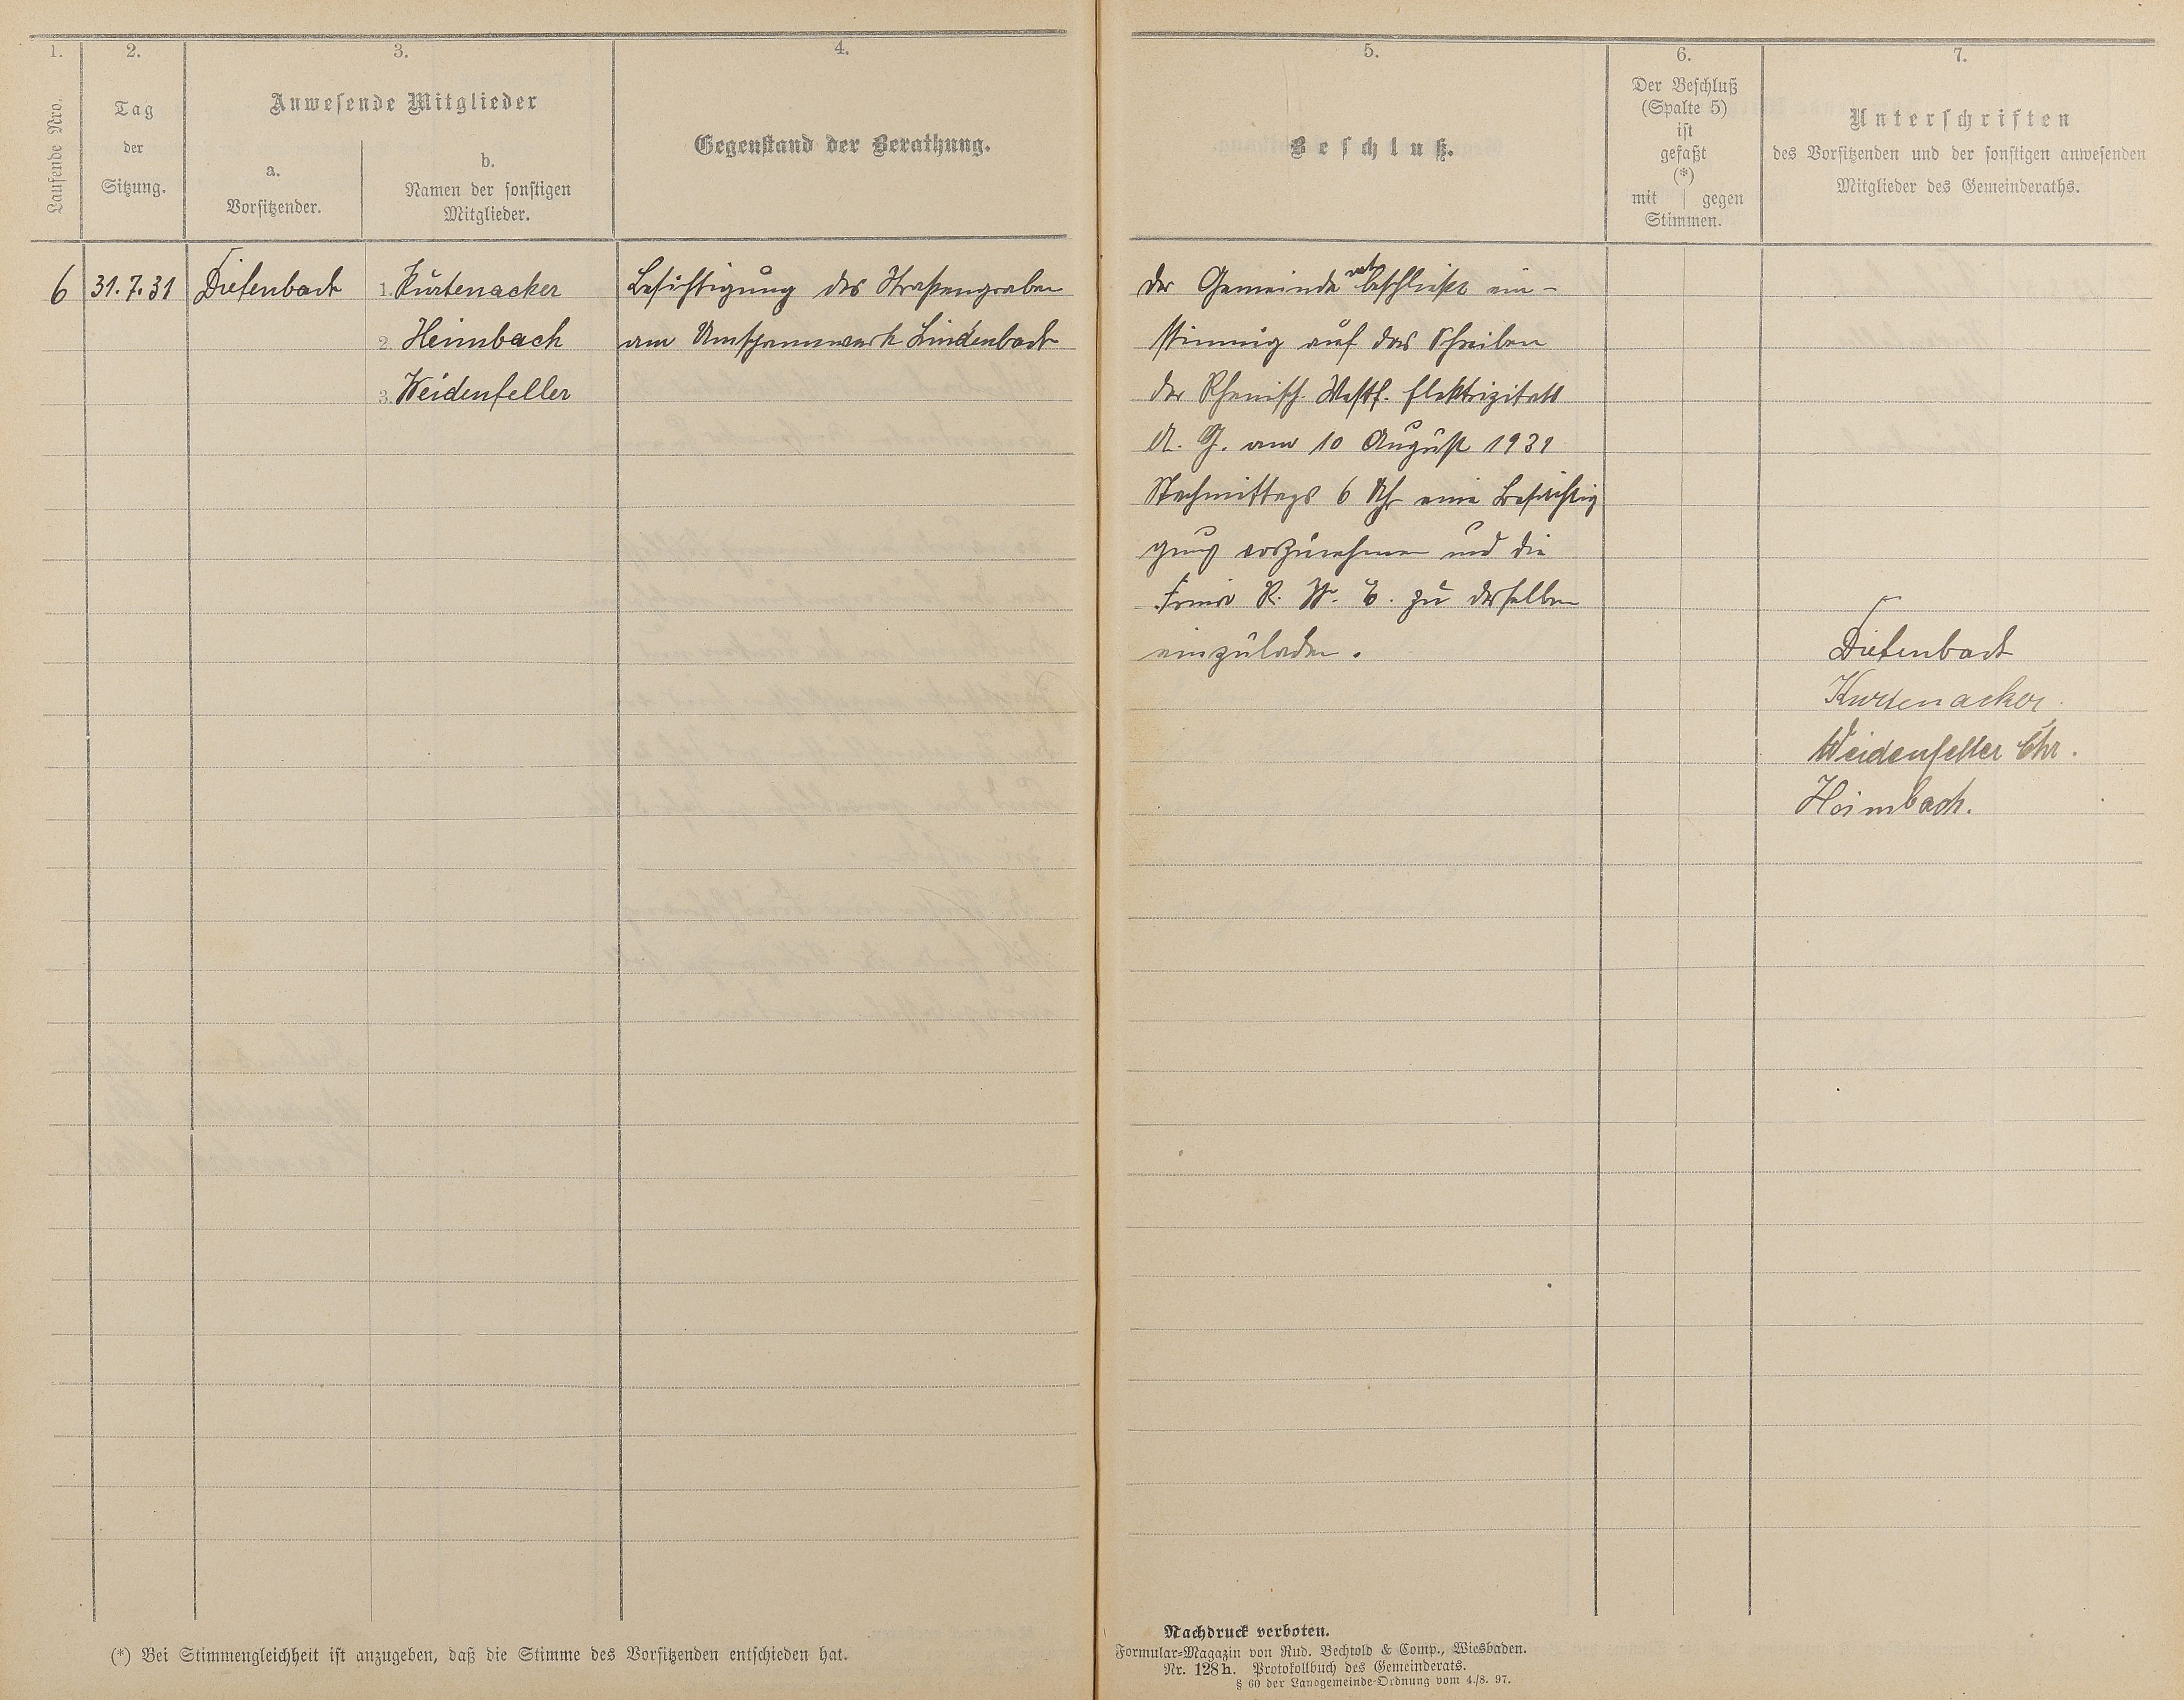 1.
2.
3.
4.
Laufende Nro.
Tag
der
Sitzung.
Anwesende Mitglieder
a.
Vorsitzender.
b.
Namen der sonstigen
Mitglieder.
Gegenstand der Berathung.
6 31.7.31 Diefenbach 1. Kurtenacker Besichtigung des Straßengraben
2. Heimbach am Umspannwerk Lindenbach
3. Weidenfeller
(*) Bei Stimmengleichheit ist anzugeben, daß die Stimme des Vorsitzenden entschieden hat.
5.
6.
7.
Beschluß.
Der Beschluß
(Spalte 5)
ist
gefaßt
(*)
mit | gegen
Stimmen.
Unterschriften
des Vorsitzenden und der sonstigen anwesenden
Mitglieder des Gemeinderaths.
Der Gemeinderat beschließt ein-
stimmig auf das Schreiben
der Rheinisch. Westf. Elektrizitäts
A. G. am 10 August 1931
Nachmittags 6 Uhr eine Besichtig
gung vorzunehmen und die
Firma R. W. E. zu derselben
einzuladen.
Diefenbach
Kurtenacker.
Weidenfeller Chr.
Heimbach.
Nachdruck verboten.
Formular-Magazin von Rud. Bechtold & Comp., Wiesbaden.
Nr. 128h. Protokollbuch des Gemeinderats.
§ 60 der Landgemeinde-Ordnung vom 4./8. 97.